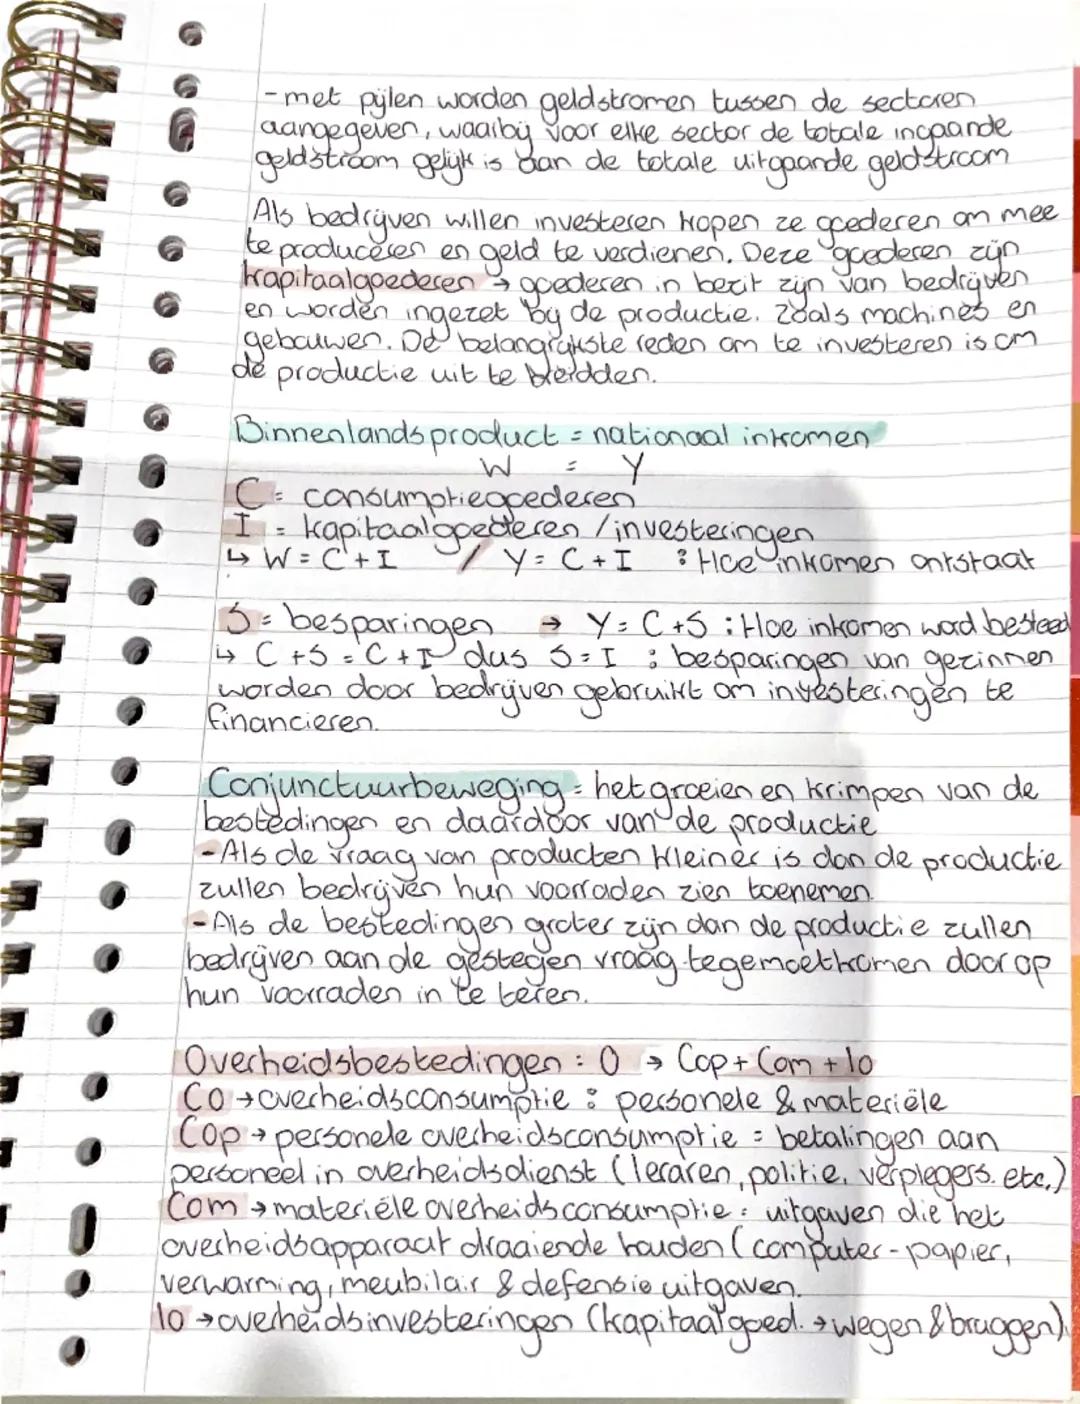 - met pijlen worden geldstromen tussen de sectoren
aangegeven, waarbij voor elke sector de totale ingaande
geldstroom gelijk is aan de totale uitgaande geldstroom
Als bedrijven willen investeren kopen ze goederen om mee
te produceren en geld te verdienen. Deze goederen zijn
kapitaalgoederen → goederen in bezit zijn van bedrijven
en worden ingezet bij de productie. Zoals machines en
gebouwen. De belangrijkste reden om te investeren is om
de productie uit te breidden.
Binnenlandsproduct = nationaal inkomen
W = Y
C = consumptiegoederen
I = kapitaalgoederen / investeringen
↳ W = C + I / Y = C + I : Hoe inkomen ontstaat
S = besparingen → Y = C + S : Hoe inkomen word besteed
↳ C + S = C + I dus S = I : besparingen van gezinnen
worden door bedrijven gebruikt om investeringen te
financieren.
Conjunctuurbeweging = het groeien en krimpen van de
bestedingen en daardoor van de productie
- Als de vraag van producten kleiner is dan de productie
zullen bedrijven hun voorraden zien toenemen.
- Als de bestedingen groter zijn dan de productie zullen
bedrijven aan de gestegen vraag tegemoetkomen door op
hun voorraden in te teren.
Overheidsbestedingen : O → Cop + Com + Io
CO → overheidsconsumptie : personele & materiële
Cop → personele overheidsconsumptie = betalingen aan
personeel in overheidsdienst (leraren, politie, verplegers. etc.)
Com → materiële overheidsconsumptie = uitgaven die het
overheidsapparaat draaiende houden (computer - papier,
verwarming, meubilair & defensie uitgaven.
Io → overheidsinvesteringen (kapitaalgoed. → wegen & bruggen).